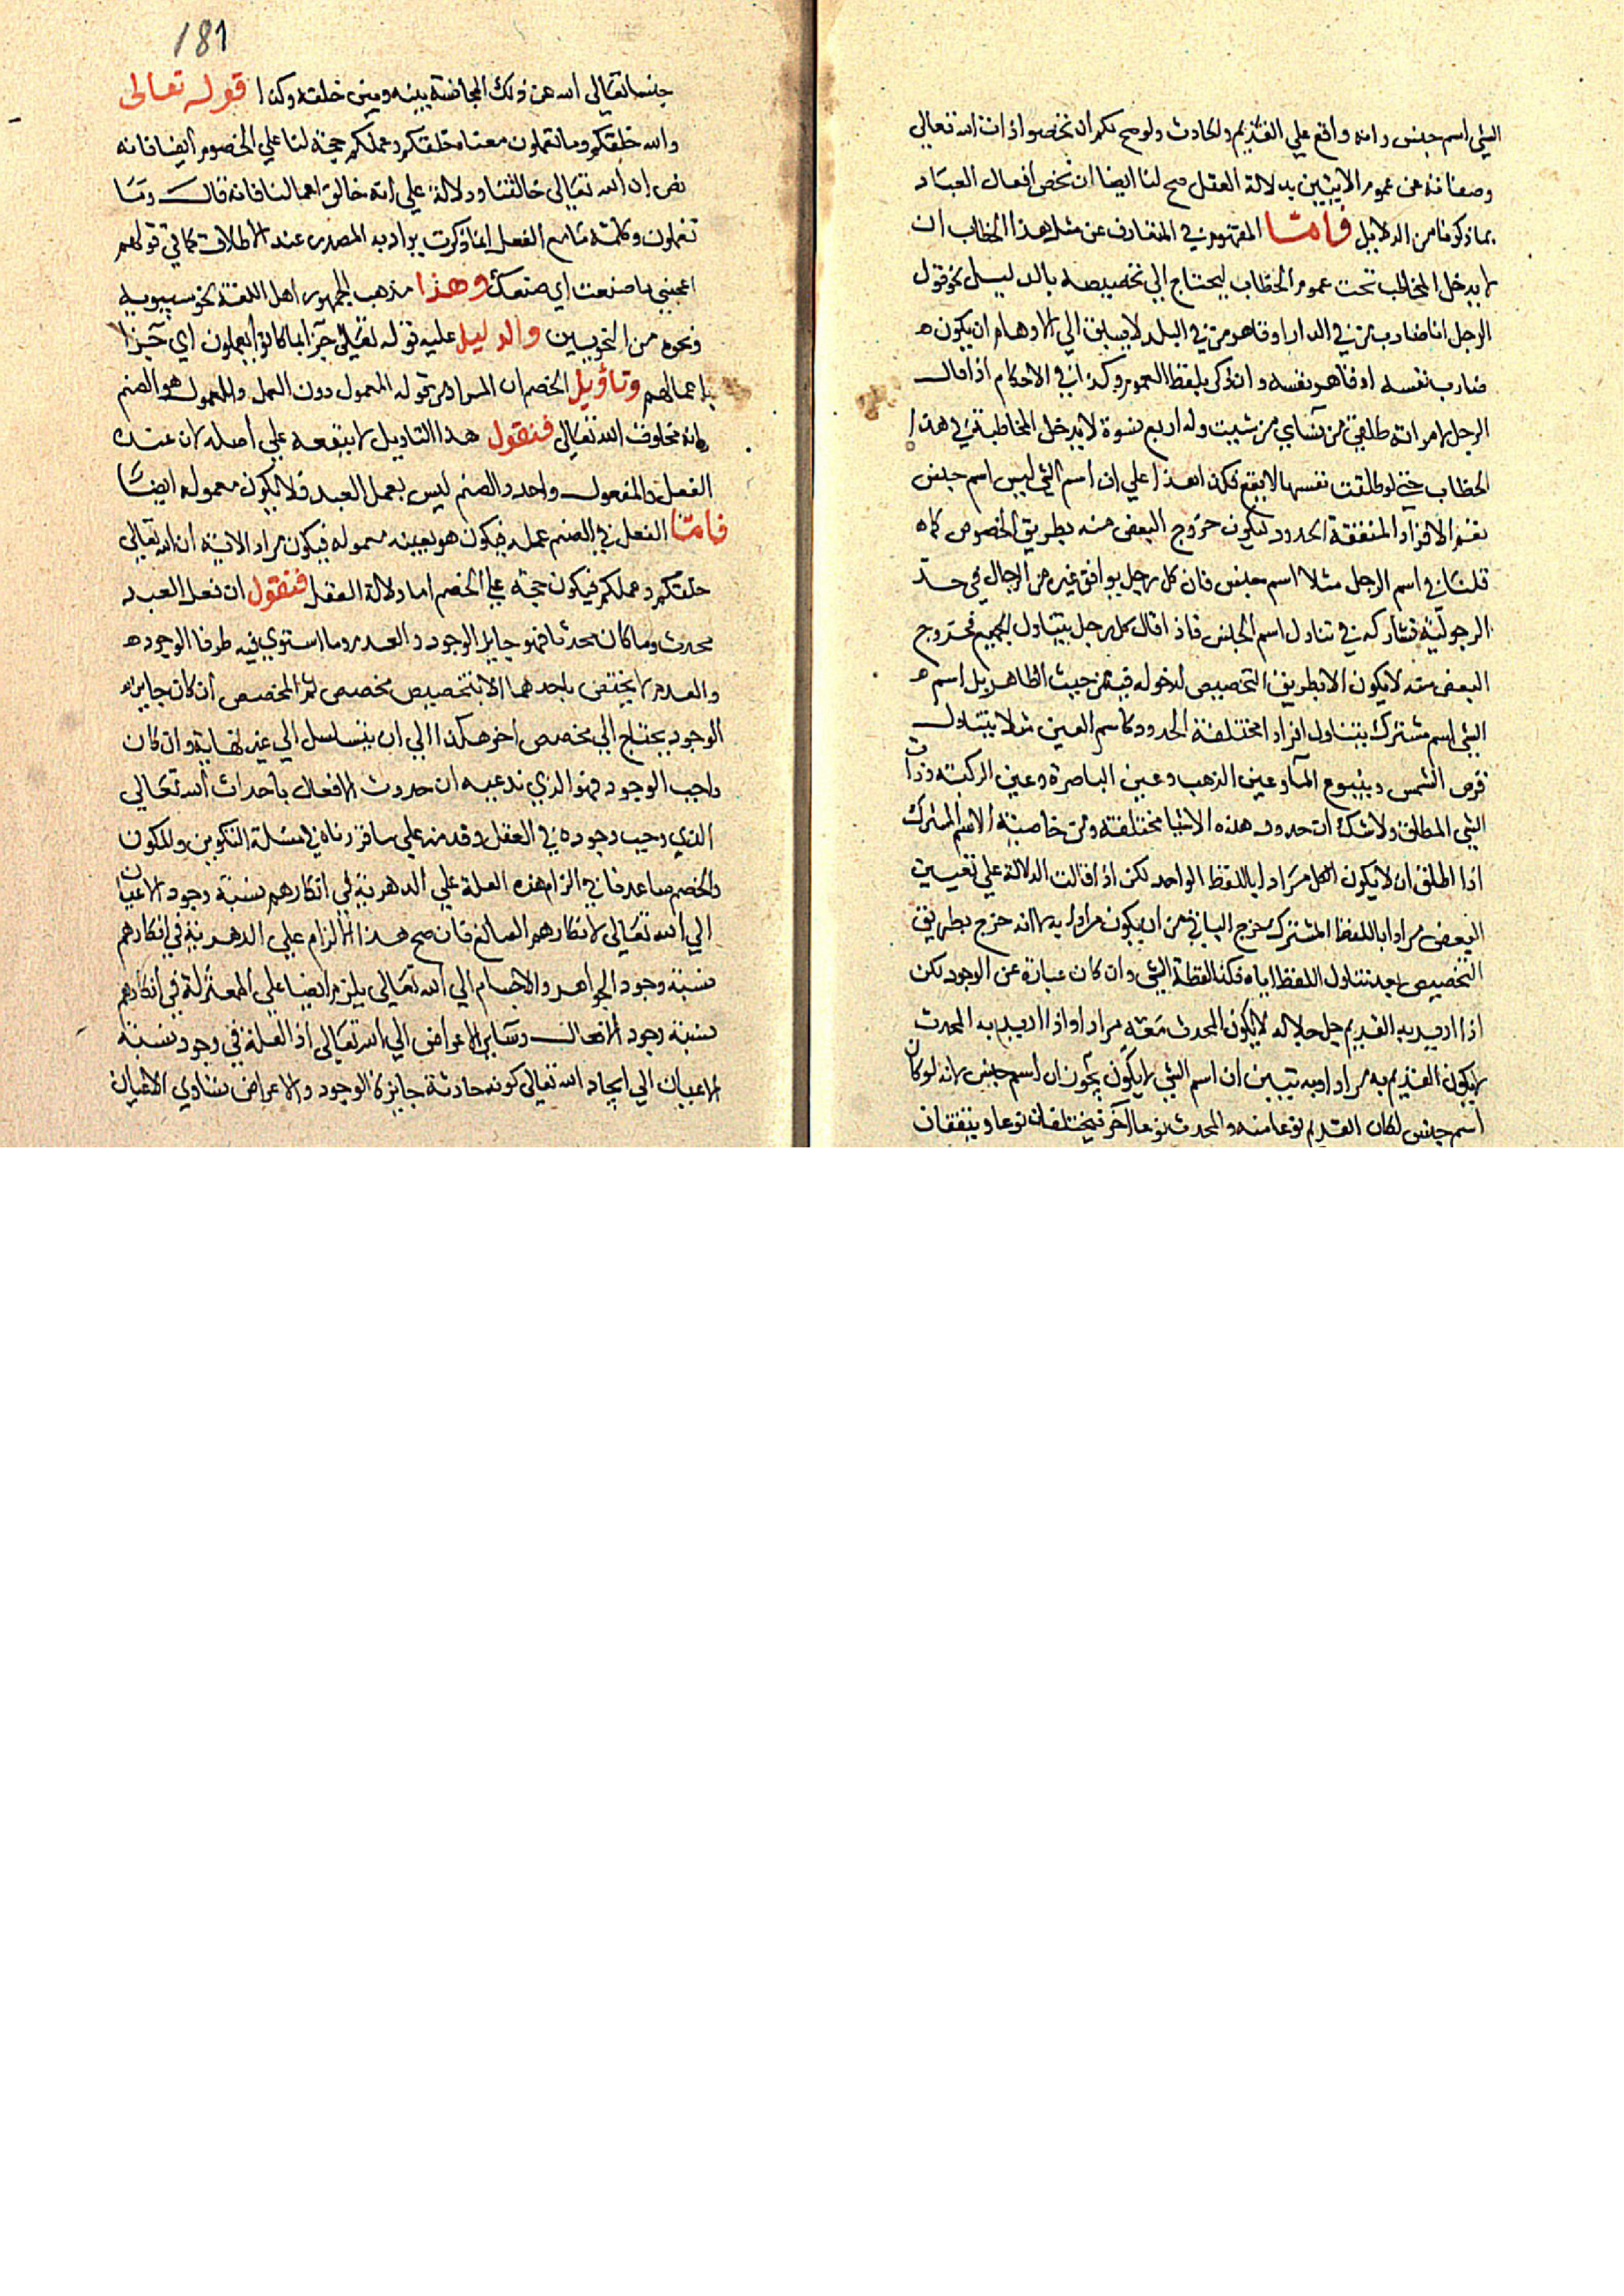 الشي اسم جنس وانه واقع علي القديم والحادث ولو صح لكم ان تخصوا ذات الله تعالي
وصفاته عن عموم الايتين بدلالة العقل صح لنا ايضا ان نخص افعال العباد
بما ذكرنا من الدلايل فامـا المفهوم في المتعارف عن مثل هذا الخطاب ان
لا يدخل المخاطب تحت عموم الخطاب ليحتاج الي تخصيصه بالدليل نحو قول
الرجل انا ضارب من في الدار او قاهر من في البلد لا يسبق الي الاوهام ان يكون
ضارب نفسه او قاهر نفسه وان ذكر بلفظ العموم وكذا في الاحكام اذا قال
الرجل لامراته طلقي من نسآي من شيت وله اربع نسوة لا يدخل المخاطبة في هذا
الخطاب حتي لو طلقت نفسها لا يقع فكذا هذا علي ان اسم الشي ليس اسم جنس
الافراد المتفقة الحدود ليكون خروج البعض منه بطريق الخصوص كما
قلنا في اسم الرجل مثلا اسم جنس فان كل رجل يوافق غيره من الرجال في حد
الرجولية فشاركه في تناول اسم الجنس فاذا قال كل رجل يتناول الجميع فخروج
البعض منه لا يكون الا بطريق التخصيص لدخوله فيه من حيث الظاهر بل اسم
الشي اسم مشترك يتناول افرادا مختلفة الحدود كاسم العين مثلا يتناول
قرص الشمس وينبوع المآ وعين الذهب وعين الباصرة وعين الركبة وذات
الشي المطلق ولا شك ان حدود هذه الاشيا مختلفة ومن خاصية الاسم المشترك
اذا اطلق ان لا يكون الكل مرادا باللفظ الواحد لكن اذا قالت الدلالة علي تعيين
البعض مرادا باللفظ المشترك يخرج الباقي من ان يكون مرادا به لا انه خرج بطريق
التخصيص بعد تناول اللفظ اياه فكذا لفظة الشي وان كان عبارة عن الوجود لكن
اذا اريد به القديم جل جلاله لا يكون المحدث معه مرادا واذا اريد به المحدث
لا يكون القديم به مرادا وبه تبين ان اسم الشي لا يكون يجوز ان اسم جنس لانه لو كان
اسم جنس لكان القديم نوعا منه والمحدث نوعا آخر فيختلفان نوعا ويتفقان
181
جنسا تعالي الله عن ذلك المجانسة بينه وبين خلقه وكذا قوله تعالى
والله خلقكم وما تعملون معناه خلقكم وعملكم حجة لنا علي الخصوم ايضا فانه
نص ان الله تعالى خالقنا ودلالة علي انه خالق اعمالنا فانه قال وما
تعملون وكلمة ما مع الفعل اذا ذكرت يراد به المصدر عند الاطلاق كما في قولهم
اعجبني ما صنعت اي صنعك وهذا مذهب الجمهور اهل اللغة نحو سيبويه
ونحوه من النحويين والدليل عليه قوله تعالى جزآ بما كانوا يعملون اي جزآ
باعمالهم وتاؤيل الخصم ان المراد من قوله المعمول دون العمل والمعمول هو الصنم
وانه مخلوق الله تعالى فنقول هذا التاويل لا ينفعه علي اصله لان عنده
الفعل والمفعول واحد والصنم ليس بعمل العبد فلا يكون معموله ايضا
فامـا الفعل في الصنم عمله فيكون هو بعينه معموله فيكون مراد الاية ان الله تعالي
خلقكم وعملكم فيكون حجة علي الخصم اما دلالة العقل فنقول ان فعل العبد
محدث وما كان محدثا فهو جايز الوجود والعدم وما استوي فيه طرفا الوجود
والعدم لا يختص باحدهما الا بتخصيص مخصص ثم المخصص ان كان جايز
الوجود يحتاج الي مخصص اخر هكذا الي ان يتسلسل الي غير نهاية وان كان
واجب الوجود فهو الذي ندعيه ان حدوث الافعال باحداث الله تعالي
الذي وجب وجوده في العقل وقدمه علي ما قررناه في مسئلة التكوين والمكون
والخصم ساعدنا في الزام هذه العلة علي الدهرية في انكارهم نسبة وجود الاعيان
الي الله تعالى لانكارهم الصانع فان صح هذا الالزام علي الدهرية في انكارهم
نسبة وجود الجواهر والاجسام الي الله تعالى يلزم ايضا علي المعتزلة في انكارهم
نسبة وجود الافعال وساير الاعراض الي الله تعالى اذ العلة في وجود نسبة
الاعيان الي ايجاد الله تعالى كونه حادثة جايزة الوجود والاعراض تساوي الاعيان